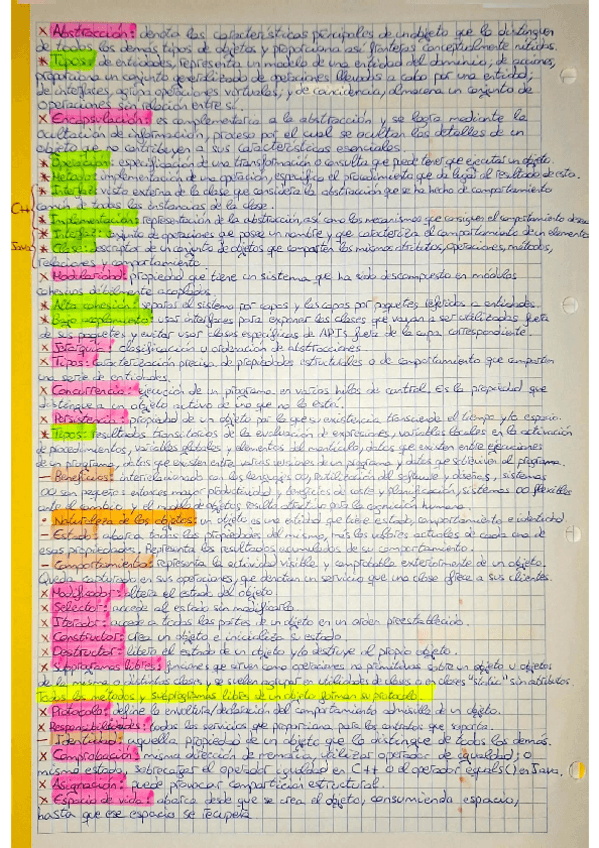 × Abstracción: denota las características principales de un objeto que lo distinguen
de todos los demás tipos de objetos y proporciona así fronteras conceptualmente nítidas.
* Tipos: de entidades, representa un modelo de una entidad del dominio; de acciones,
proporciona un conjunto generalizado de operaciones llevadas a cabo por una entidad;
de interfaces, agrupa operaciones virtuales; y de coincidencia, almacena un conjunto de
operaciones sin relación entre sí.
× Encapsulación: es complementaria a la abstracción y se logra mediante la
ocultación de información, proceso por el cual se ocultan los detalles de un
objeto que no contribuyen a sus características esenciales.
* Operación: especificación de una transformación o consulta que puede tener que ejecutar un objeto.
* Método: implementación de una operación, especifica el procedimiento que da lugar al resultado de esta.
C++
* Interfaz: vista externa de la clase que considera la abstracción que se ha hecho de comportamiento
común de todos las instancias de la clase.
* Implementación: representación de la abstracción, así como los mecanismos que consiguen el comportamiento
Java
* Interfaz: conjunto de operaciones que posee un nombre y que caracteriza el comportamiento de un elemento
* Clase: descriptor de un conjunto de objetos que comparten los mismos atributos, operaciones, métodos,
relaciones y comportamiento.
× Modularidad: propiedad que tiene un sistema que ha sido descompuesto en módulos
cohesivos débilmente acoplados
* Alta cohesión: separar al sistema por capas y las capas por paquetes referidos a entidades.
* Bajo acoplamiento: usar interfaces para exponer las clases que vayan a ser utilizadas fuera
de sus paquetes y evitar usar clases específicas de APIS fuera de la capa correspondiente.
× Jerarquía: clasificación u ordenación de abstracciones
× Tipos: caracterización precisa de propiedades estructurales o de comportamiento que comparten
una serie de entidades.
× Concurrencia: ejecución de un programa en varios hilos de control. Es la propiedad que
distingue a un objeto activo de uno que no lo está.
× Persistencia: propiedad de un objeto por la que su existencia transciende el tiempo y/o espacio.
* Tipos: resultados transitorios de la evaluación de expresiones, variables locales en la activación
de procedimientos, variables globales y elementos del montículo, datos que existen entre ejecuciones
de un programa, datos que existen entre varias versiones de un programa y datos que sobreviven al programa.
- Beneficios: interrelacionado con los lenguajes OO, reutilización del software y diseños, sistemas
OO son pequeños entonces mayor productividad y beneficios de coste y planificación, sistemas OO flexibles
ante el cambio y el modelo de objetos resulta atractivo para la cognición humana.
• Naturaleza de los objetos: un objeto es una entidad que tiene estado, comportamiento e identidad
- Estado: abarca todas las propiedades del mismo, más los valores actuales de cada una de
esas propiedades. Representa los resultados acumulados de su comportamiento.
- Comportamiento: representa la actividad visible y comprobable exteriormente de un objeto.
Queda capturado en sus operaciones, que denotan un servicio que una clase ofrece a sus clientes.
× Modificador: altera el estado del objeto
× Selector: accede al estado sin modificarlo
× Iterador: accede a todas las partes de un objeto en un orden preestablecido.
× Constructor: crea un objeto e inicializa su estado
× Destructor: libera el estado de un objeto y/o destruye el propio objeto.
× Subprogramas libres: funciones que sirven como operaciones no primitivas sobre un objeto u objetos
de la misma o distintas clases y se suelen agrupar en utilidades de clases o en clases "static" sin atributos.
Todos los métodos y subprogramas libres de un objeto forman su protocolo.
× Protocolo: define la envoltura/declaración del comportamiento admisible de un objeto.
× Responsabilidades: todos los servicios que proporciona para los contratos que soporta.
- Identidad: aquella propiedad de un objeto que lo distingue de todos los demás.
× Comprobación: misma dirección de memoria utilizar operador de igualdad; o
mismo estado, sobrecargar el operador igualdad en C++ o el operador equals() en Java.
× Asignación: puede provocar compartición estructural.
× Espacio de vida: abarca desde que se crea el objeto, consumiendo espacio,
hasta que ese espacio se recupera